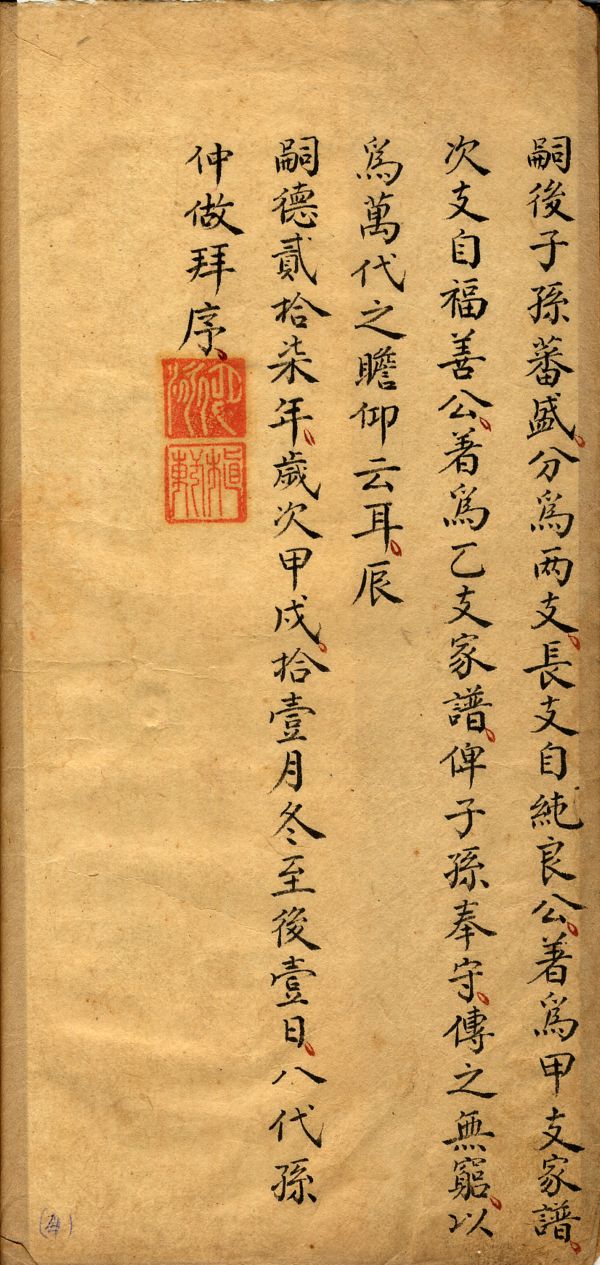 嗣後子孫蕃盛分爲两支長支自純良公著爲甲支家譜
次支自福善公著爲乙支家譜俾子孫奉守傳之無窮以
爲萬代之瞻仰云耳辰
嗣德貳拾柒年歲次甲戌拾壹月冬至後壹日八代孫
仲做拜序